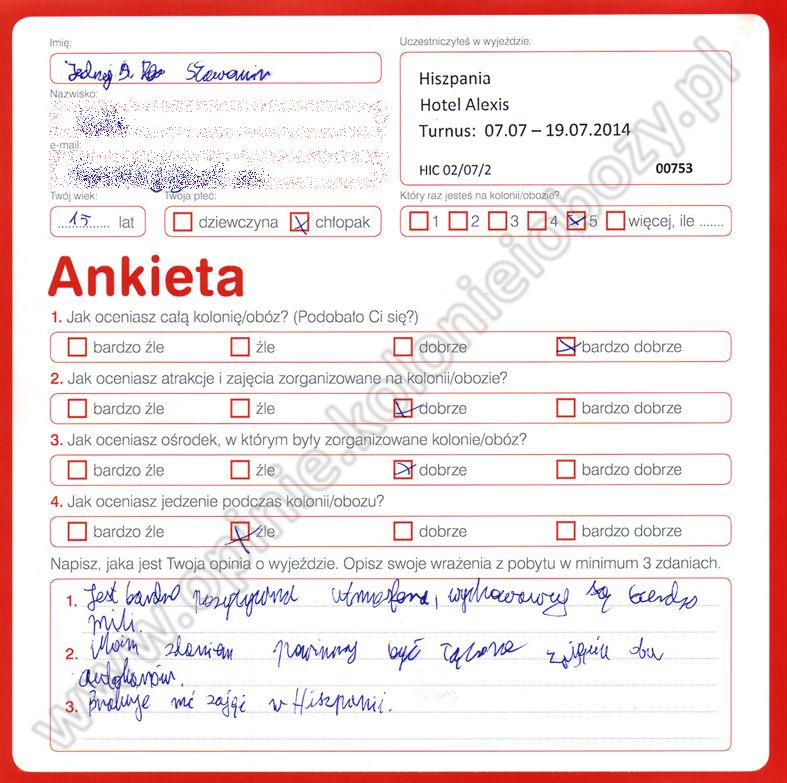 Imię:
Uczestniczyłeś w wyjeździe:
Hiszpania
Hotel Alexis
Turnus: 07.07 – 19.07.2014
HIC 02/07/2 00753
Nazwisko:
e-mail:
Twój wiek: Twoja płeć: Który raz jesteś na kolonii/obozie?
15 lat dziewczyna chłopak 1 2 3 4 5 więcej, ile .......
Ankieta
1. Jak oceniasz całą kolonię/obóz? (Podobało Ci się?)
bardzo źle źle dobrze bardzo dobrze
2. Jak oceniasz atrakcje i zajęcia zorganizowane na kolonii/obozie?
bardzo źle źle dobrze bardzo dobrze
3. Jak oceniasz ośrodek, w którym były zorganizowane kolonie/obóz?
bardzo źle źle dobrze bardzo dobrze
4. Jak oceniasz jedzenie podczas kolonii/obozu?
bardzo źle źle dobrze bardzo dobrze
Napisz, jaka jest Twoja opinia o wyjeździe. Opisz swoje wrażenia z pobytu w minimum 3 zdaniach.
1. Jest bardzo pozytywna atmosfera, wychowawcy są bardzo
mili.
2. Moim zdaniem powinny być łączone zajęcia obu
autokarów.
3. Brakuje mi zajęć w Hiszpanii.
www.opinie.kolonieiobozy.pl